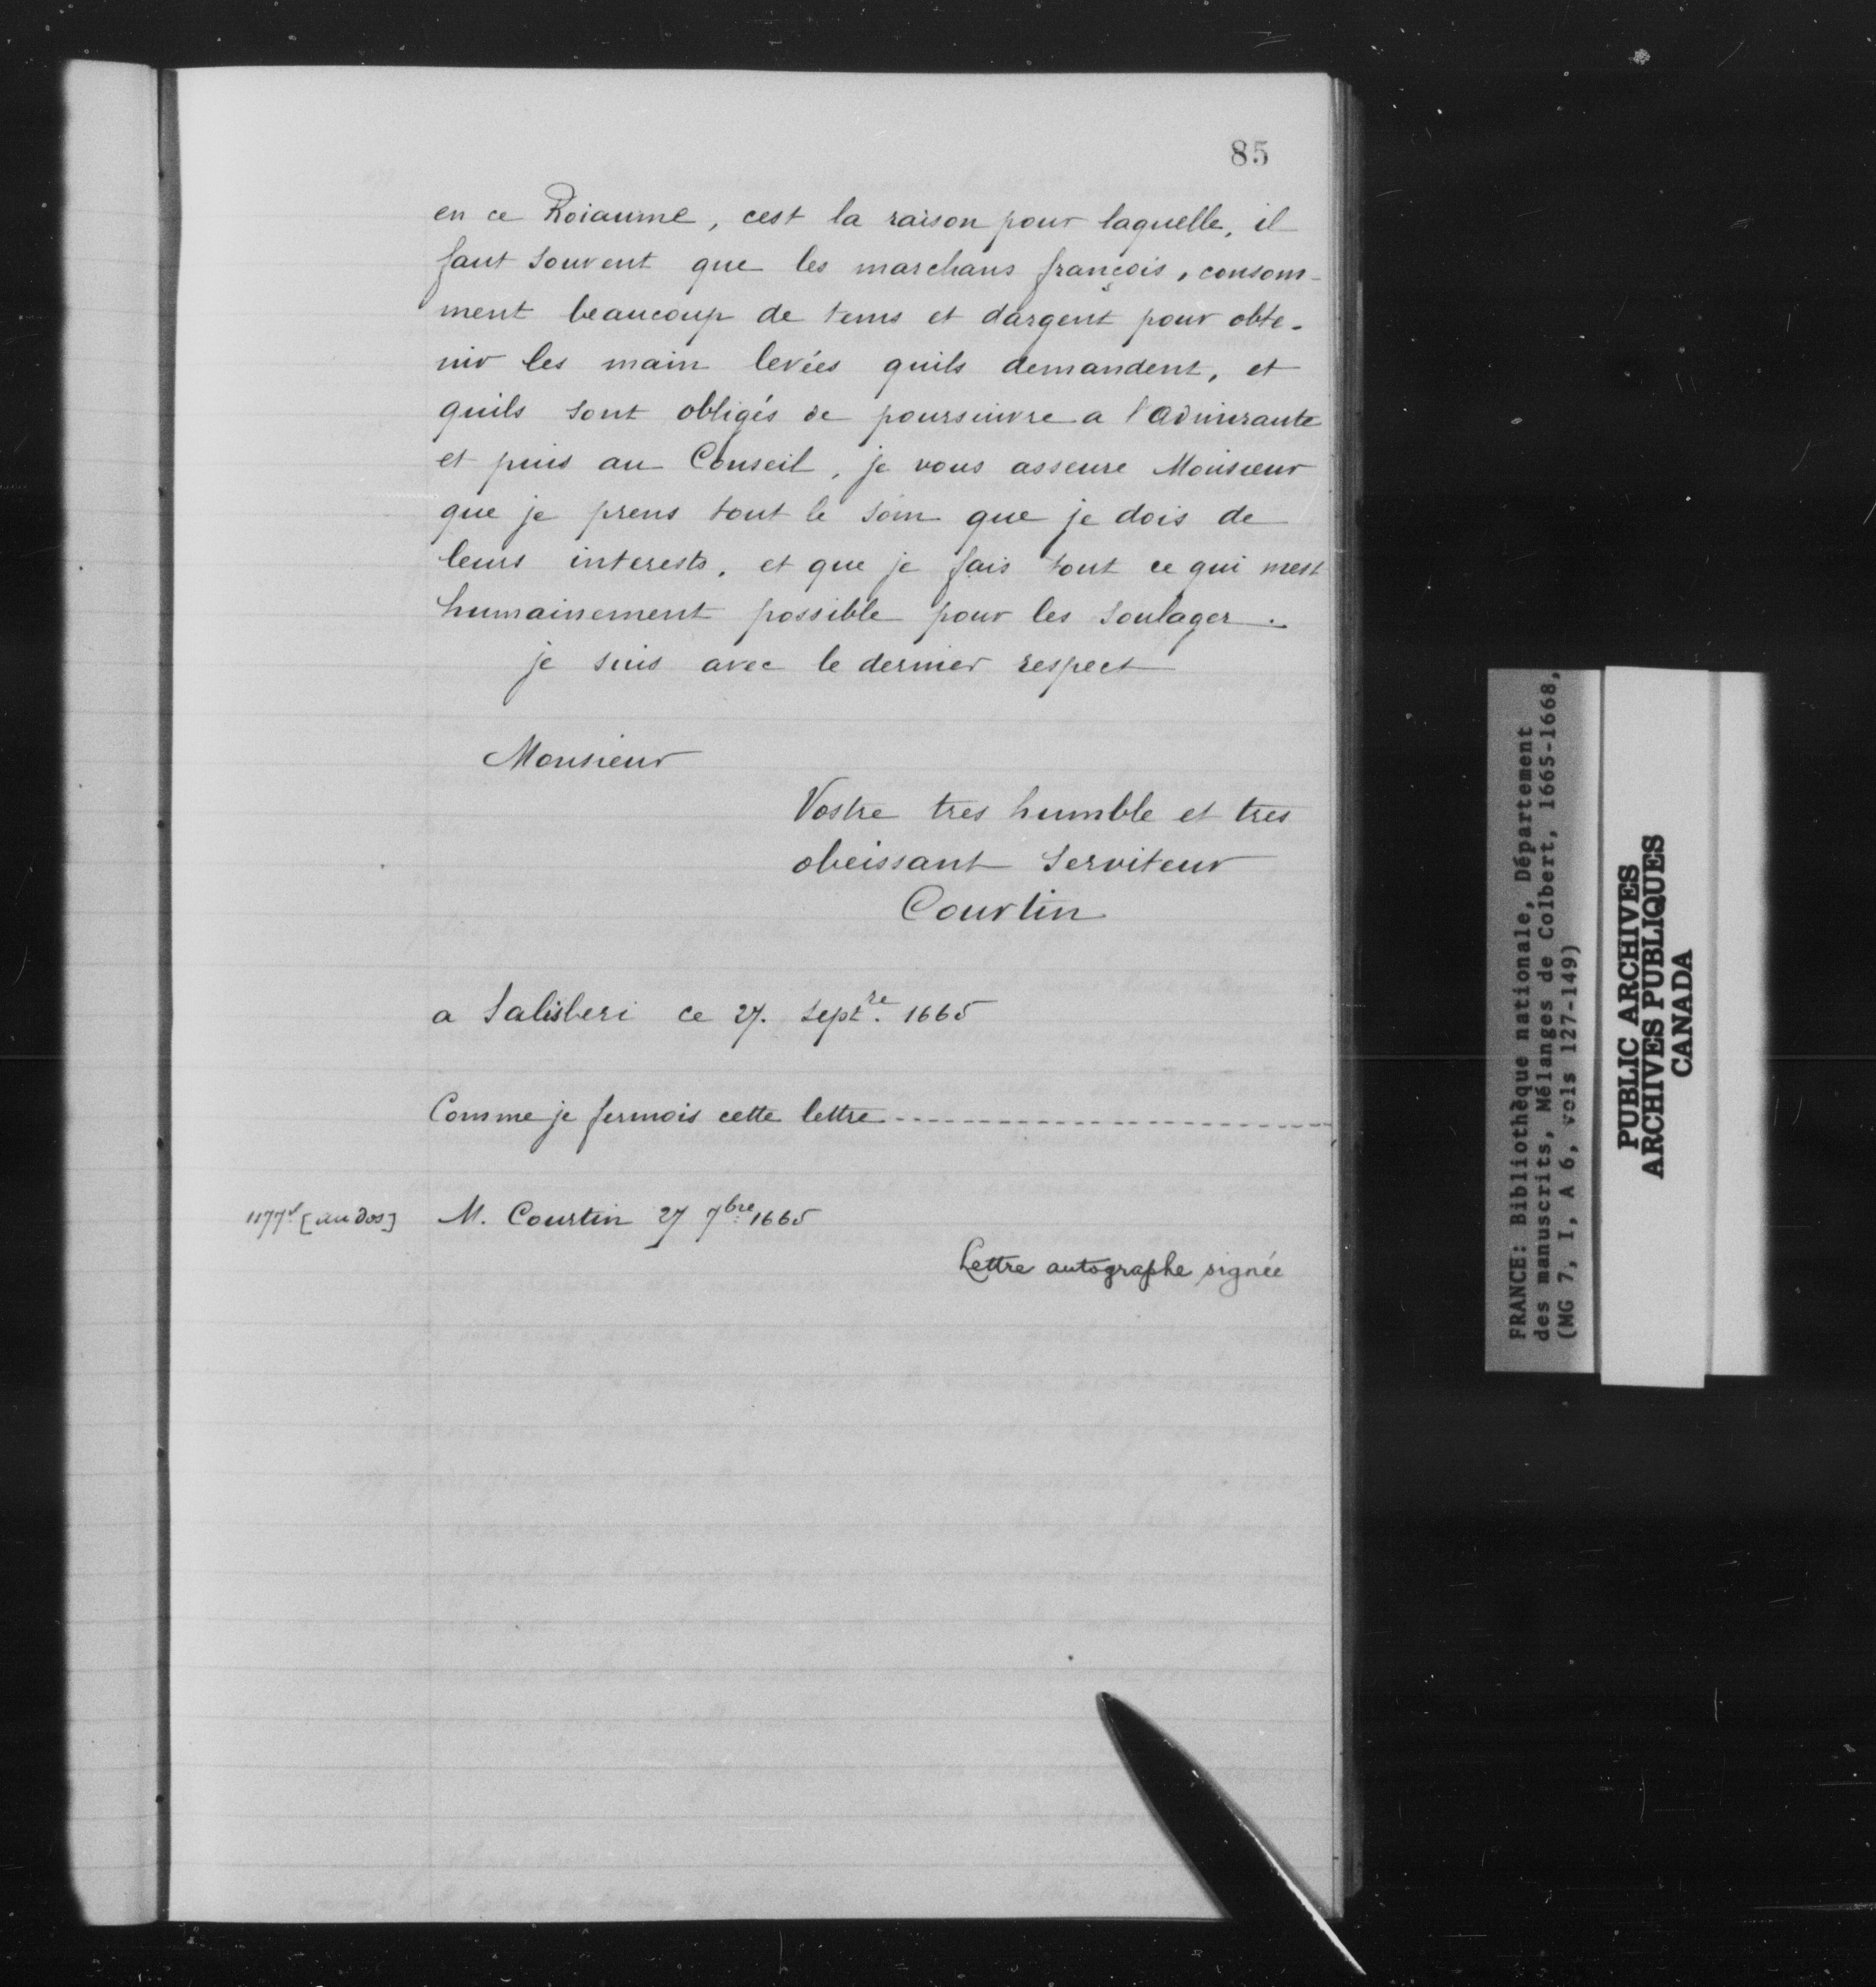 85
en ce Roiaume, cest la raison pour laquelle, il
faut souvent que les marchans françois, consom-
ment beaucoup de tems et dargent pour obte-
nir les main levées quils demandent, et
quils sont obligés de poursuivre a l'admirauté
et puis au Conseil, je vous asseure Monsieur
que je prens tout le soin que je dois de
leurs interests, et que je fais tout ce qui mest
humainement possible pour les soulager.
je suis avec le dernier respect
Monsieur
Vostre tres humble et tres
obeissant serviteur
Courtin
a Salisberi ce 27. septre. 1665
Comme je fermois cette lettre
1177v [au dos] M. Courtin 27 7bre 1665
Lettre autographe signée
FRANCE: Bibliothèque nationale, Département
des manuscrits, Mélanges de Colbert, 1665-1668,
(MG 7, I, A 6, vols 127-149)
PUBLIC ARCHIVES
ARCHIVES PUBLIQUES
CANADA